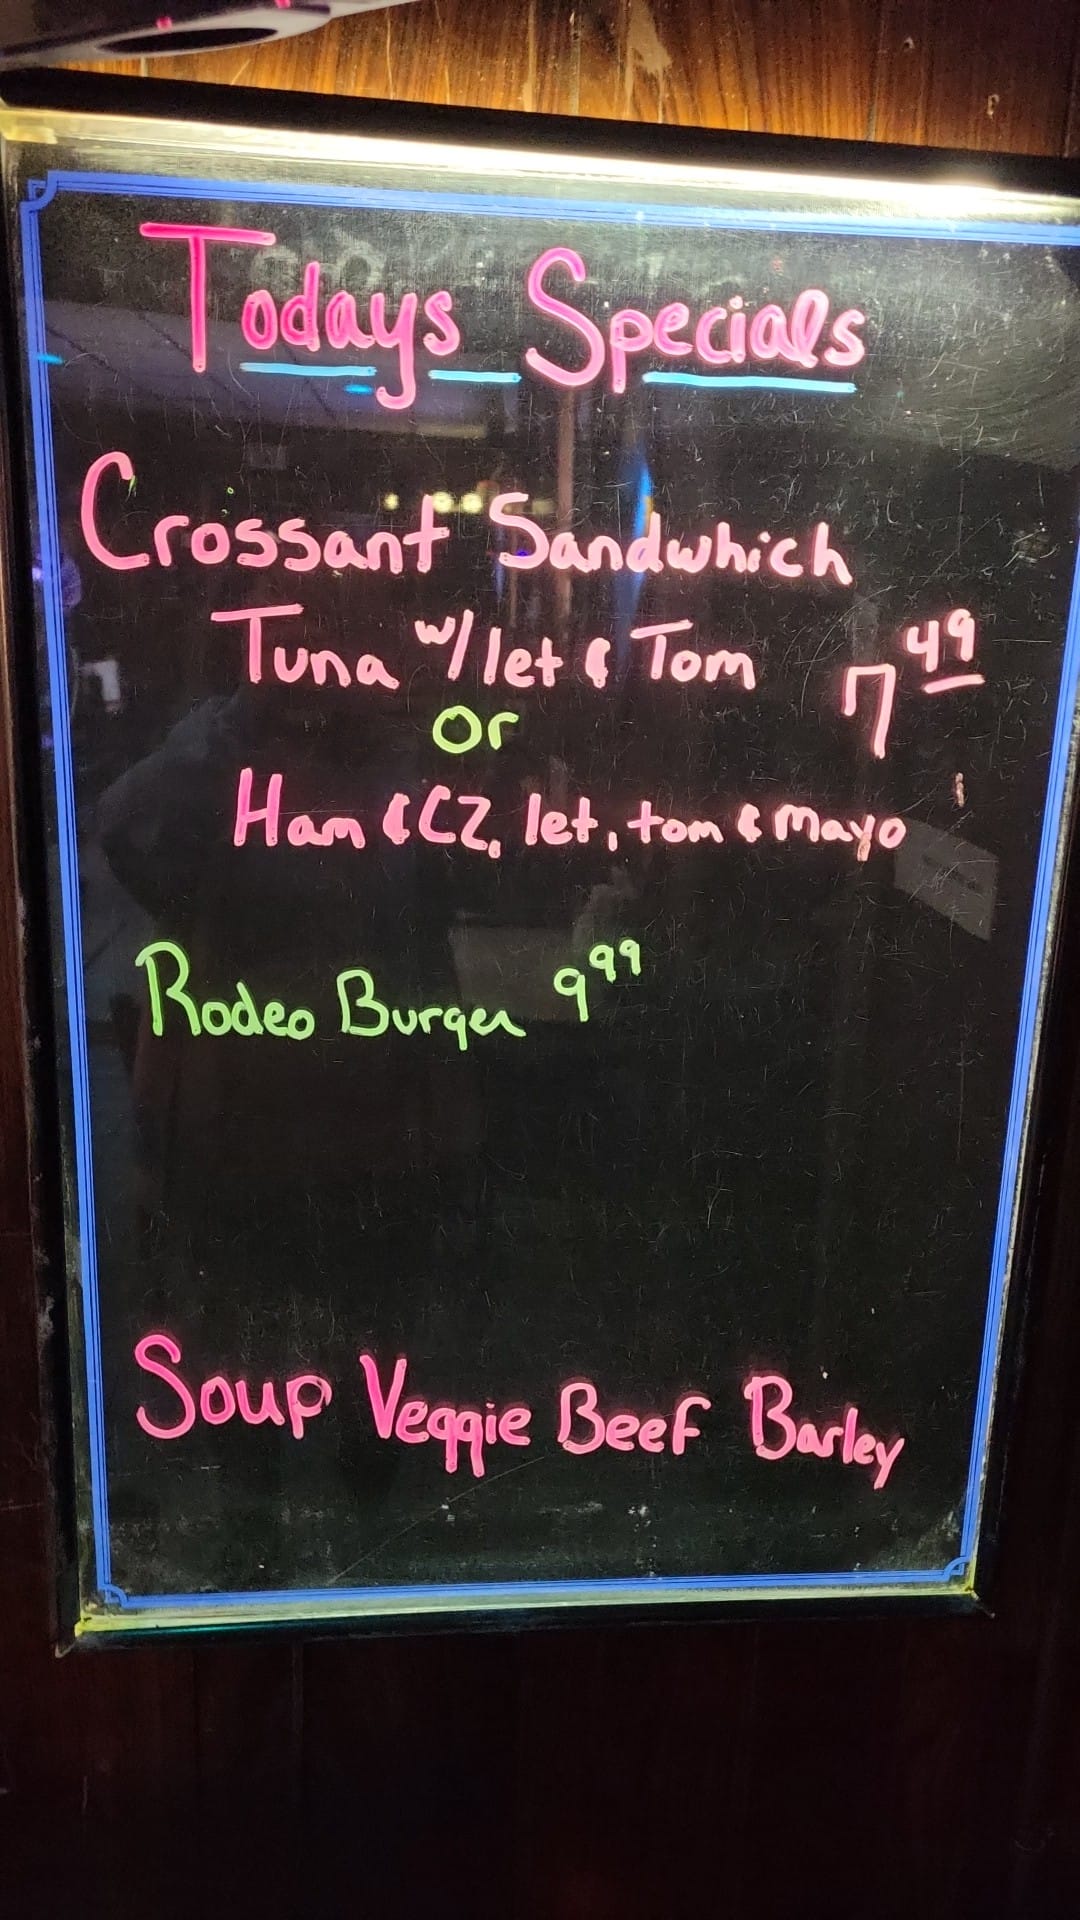 Todays Specials
Crossant Sandwhich
Tuna w/ let & Tom 7 49
or
Ham & CZ, let, tom & mayo
Rodeo Burger 9 99
Soup Veggie Beef Barley